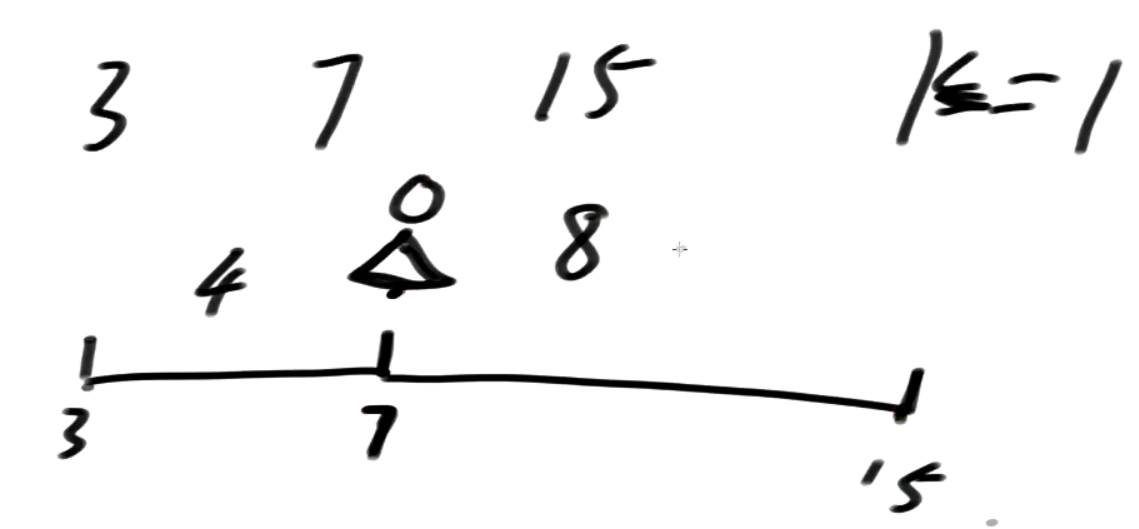 3 7 15 K=1
0
4 8
3 7 15